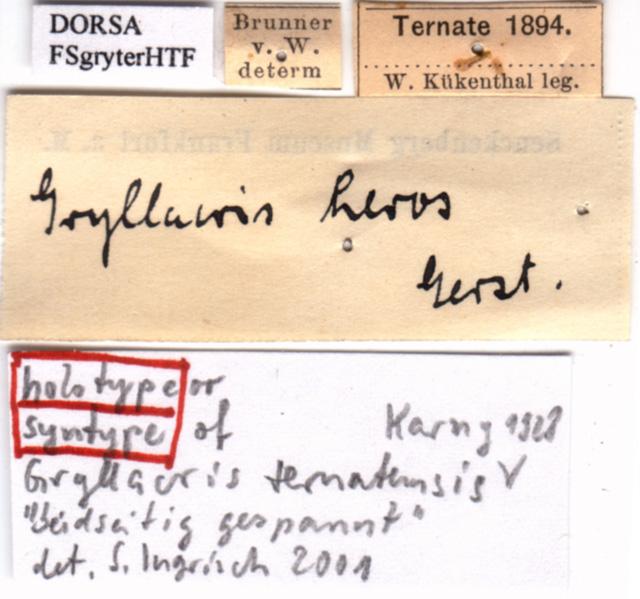 DORSA
FSgryterHTF
Brunner
v. W.
determ
Ternate 1894.
W. Kükenthal leg.
Senckenberg Museum Frankfurt a. M.
Gryllacris heros
Gerst.
holotype or
syntype of Karny 1928
Gryllacris ternatensis
"beidseitig gespannt"
det. S. Ingrisch 2001